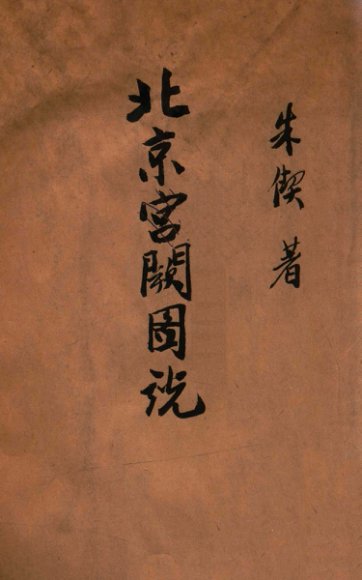 朱偰著
北京宮闕圖説